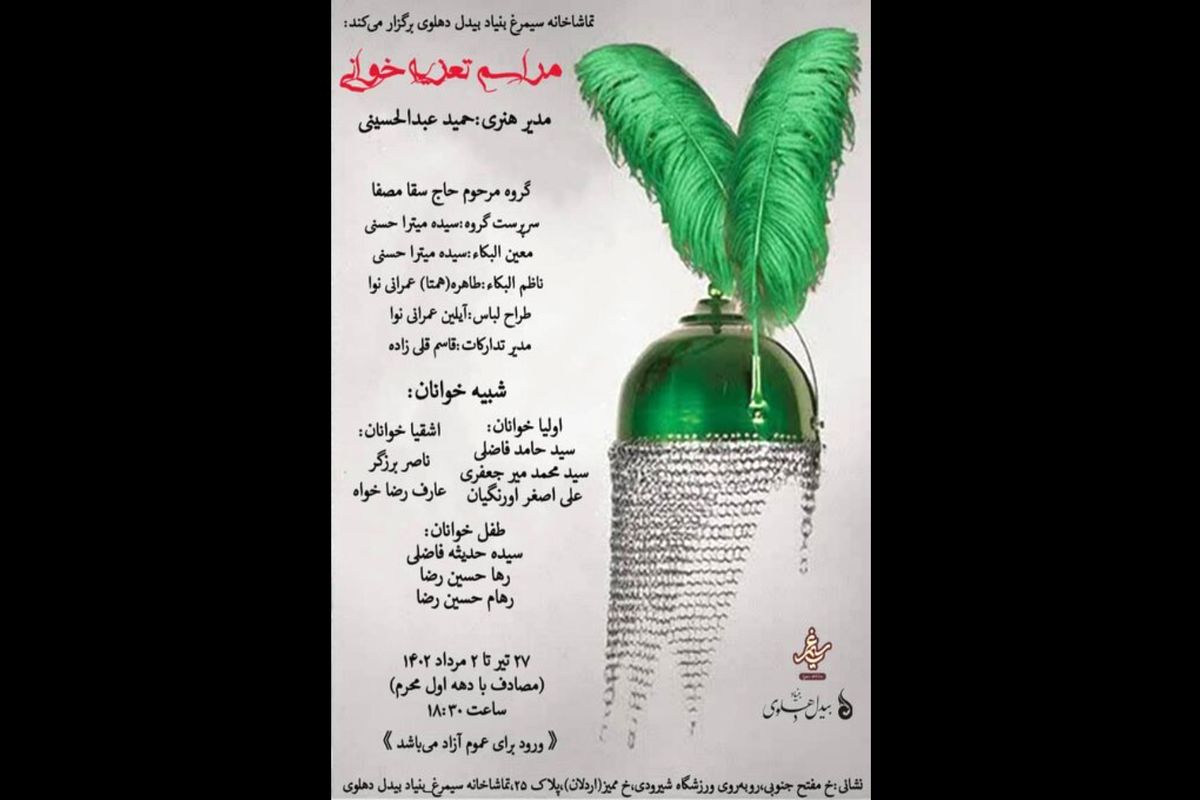 تماشاخانه سیمرغ بنیاد بیدل دهلوی برگزار می‌کند:
مراسم تعزیه خوانی
مدیر هنری:حمید عبدالحسینی
گروه مرحوم حاج سقا مصفا
سرپرست گروه:سیده میترا حسنی
معین البکاء:سیده میترا حسنی
ناظم البکاء:طاهره(همتا) عمرانی نوا
طراح لباس:آیلین عمرانی نوا
مدیر تدارکات:قاسم قلی زاده
شبیه خوانان:
اولیا خوانان:
سید حامد فاضلی
سید محمد میر جعفری
علی اصغر اورنگیان
اشقیا خوانان:
ناصر برزگر
عارف رضا خواه
طفل خوانان:
سیده حدیثه فاضلی
رها حسین رضا
رهام حسین رضا
۲۷ تیر تا ۲ مرداد ۱۴۰۲
(مصادف با دهه اول محرم)
ساعت ۱۸:۳۰
《 ورود برای عموم آزاد می‌باشد 》
سیمرغ
بنیاد
بیدل دهلوی
نشانی:خ مفتح جنوبی،روبه‌روی ورزشگاه شیرودی،خ ممیز(اردلان)،پلاک ۲۵،تماشاخانه سیمرغ_بنیاد بیدل دهلوی